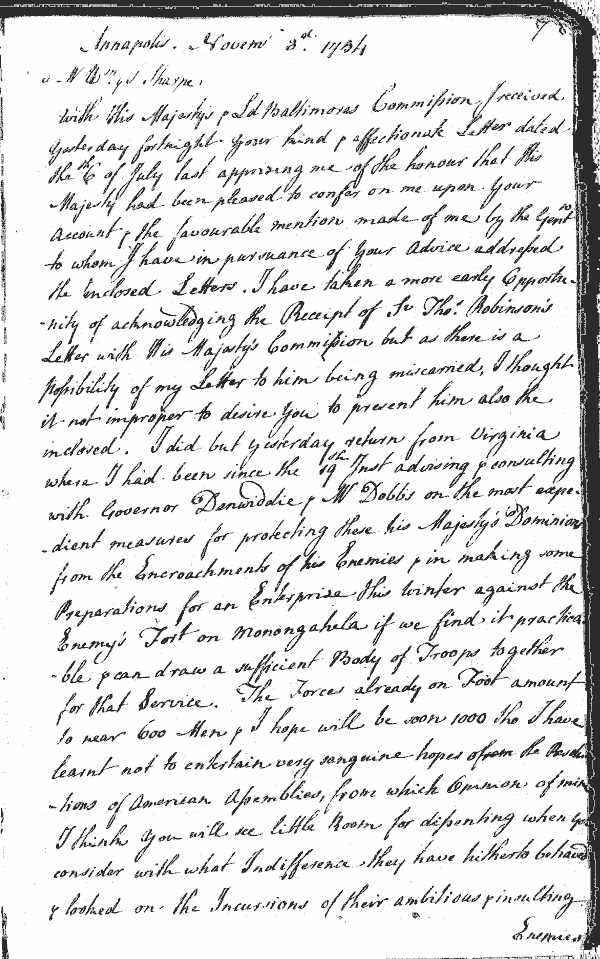 78
Annapolis. Novemr 3rd. 1754
Wm. Sharpe,
With His Majesty's & Ld Baltimores Commission I received
yesterday fortnight your kind & affectionate Letter dated
the 6th of July last apprising me of the honour that His
Majesty had been pleased to confer on me upon Your
Account & the favourable mention made of me by the Gentn
to whom I have in pursuance of Your Advice addressed
the enclosed Letters. I have taken a more early Opportu-
-nity of acknowledging the Receipt of Sr Thos. Robinson's
Letter with His Majesty's Commission but as there is a
Possibility of my Letter to him being miscarried, I thought
it not improper to desire You to present him also the
inclosed. I did but yesterday return from Virginia
where I had been since the 19th Inst advising & consulting
with Governor Denwiddie & Mr Dobbs on the most expe-
-dient measures for protecting these his Majesty's Dominions
from the Encroachments of his Enemies & in making some
Preparations for an Enterprize this Winter against the
Enemy's Fort on Monongahela if we find it practica-
-ble & can draw a sufficient Body of Troops together
for that Service. The Forces already on Foot amount
to near 600 Men & I hope will be soon 1000 tho I have
learnt not to entertain very sanguine hopes of the Resolu
-tions of American Assemblies, from which Opinion of mine
I think You will see little Room for dissenting when you
consider with what Indifference they have hitherto behaved
& looked on the Incursions of their ambitious & insulting
Enemies